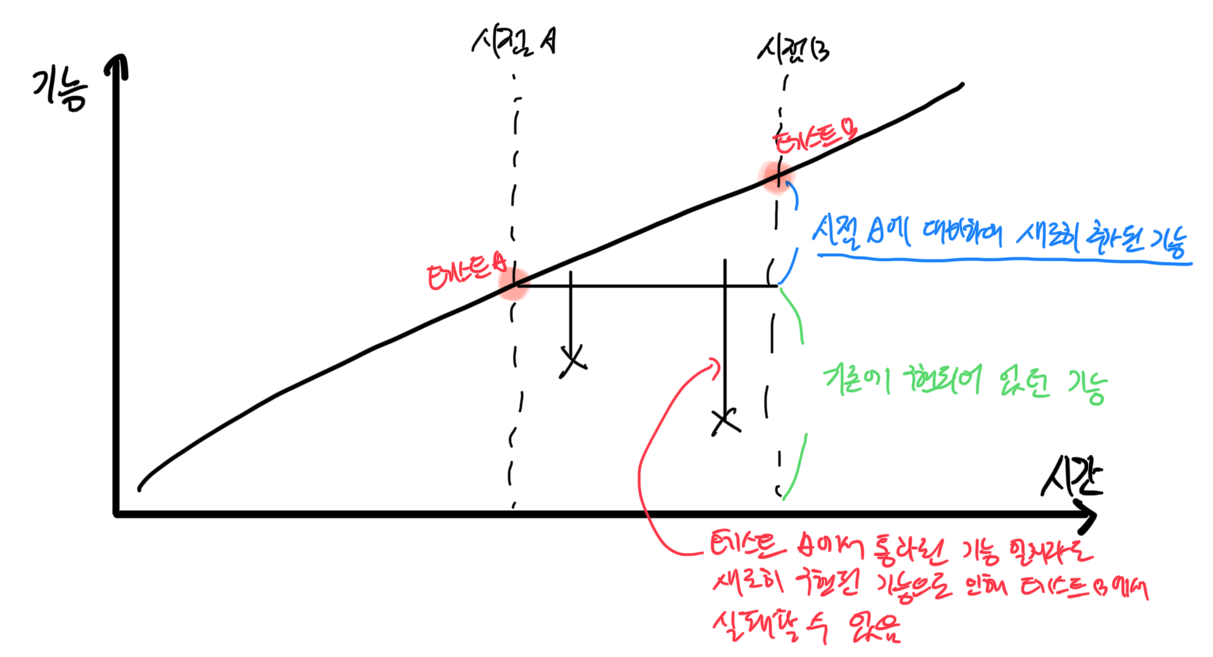 시점 A
시점 B
기능
테스트 B
시점 A에 대비하여 새로히 추가된 기능
테스트 A
기존에 구현되어 있던 기능
시간
테스트 A에서 통과된 기능 일지라도
새로히 구현된 기능으로 인해 테스트 B에서
실패할 수 있음